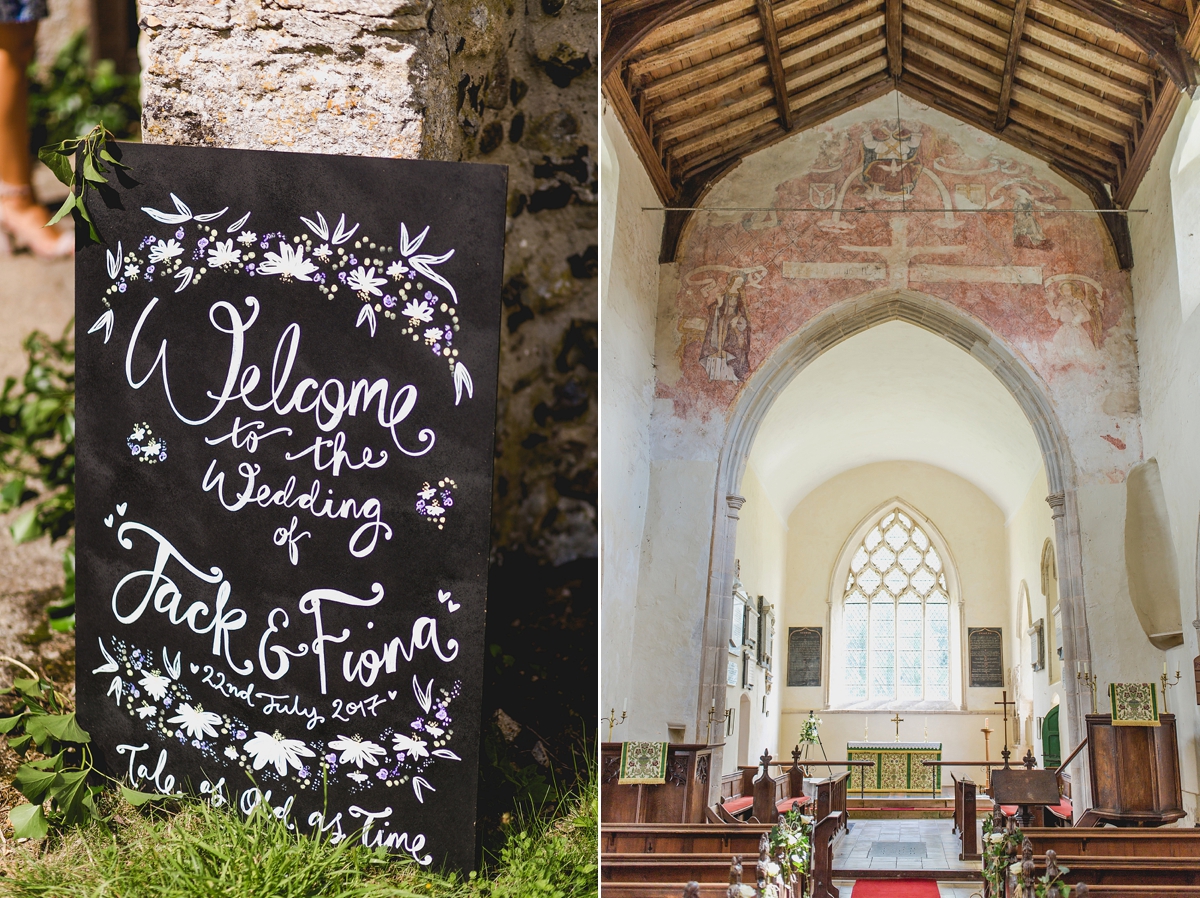 Welcome
to the
Wedding
of
Jack & Fiona
22nd July 2017
Tale as Old as Time